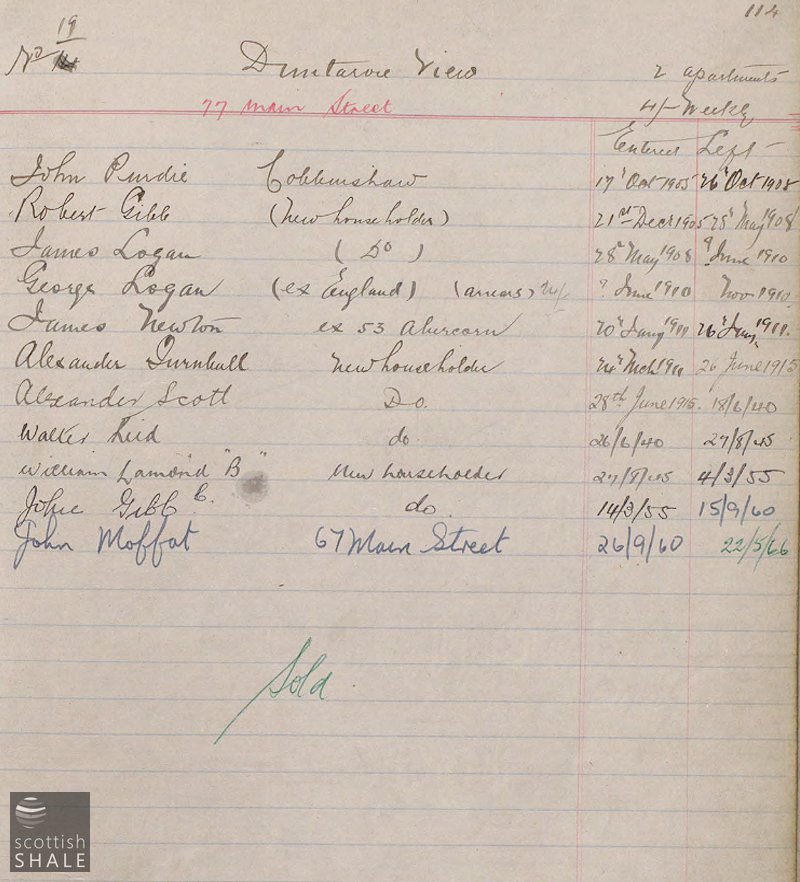 114
19
No
Duntarvie View
2 apartments
77 Main Street
4/- Weekly
Entered Left
John Purdie Cobbinshaw 17th Oct 1905 26th Oct 1905
Robert Gibb (New householder) 21st Decr 1905 25th May 1908
James Logan (Do) 28th May 1908 9th June 1910
George Logan (ex England) (arrears) ? June 1910 Nov 1910
James Newton ex 53 Abercorn 20th Jany 1911 26th Jany 1911.
Alexander Turnbull New householder Mch 1911 26 June 1915
Alexander Scott Do. 28th June 1915. 18/6/40
Walter Reid do 26/6/40 27/8/45
William Lamond "B" New householder 27/8/45 4/3/55
John Gibb C. do. 14/3/55 15/9/60
John Moffat 67 Main Street 26/9/60 22/5/66
Sold
scottish
SHALE